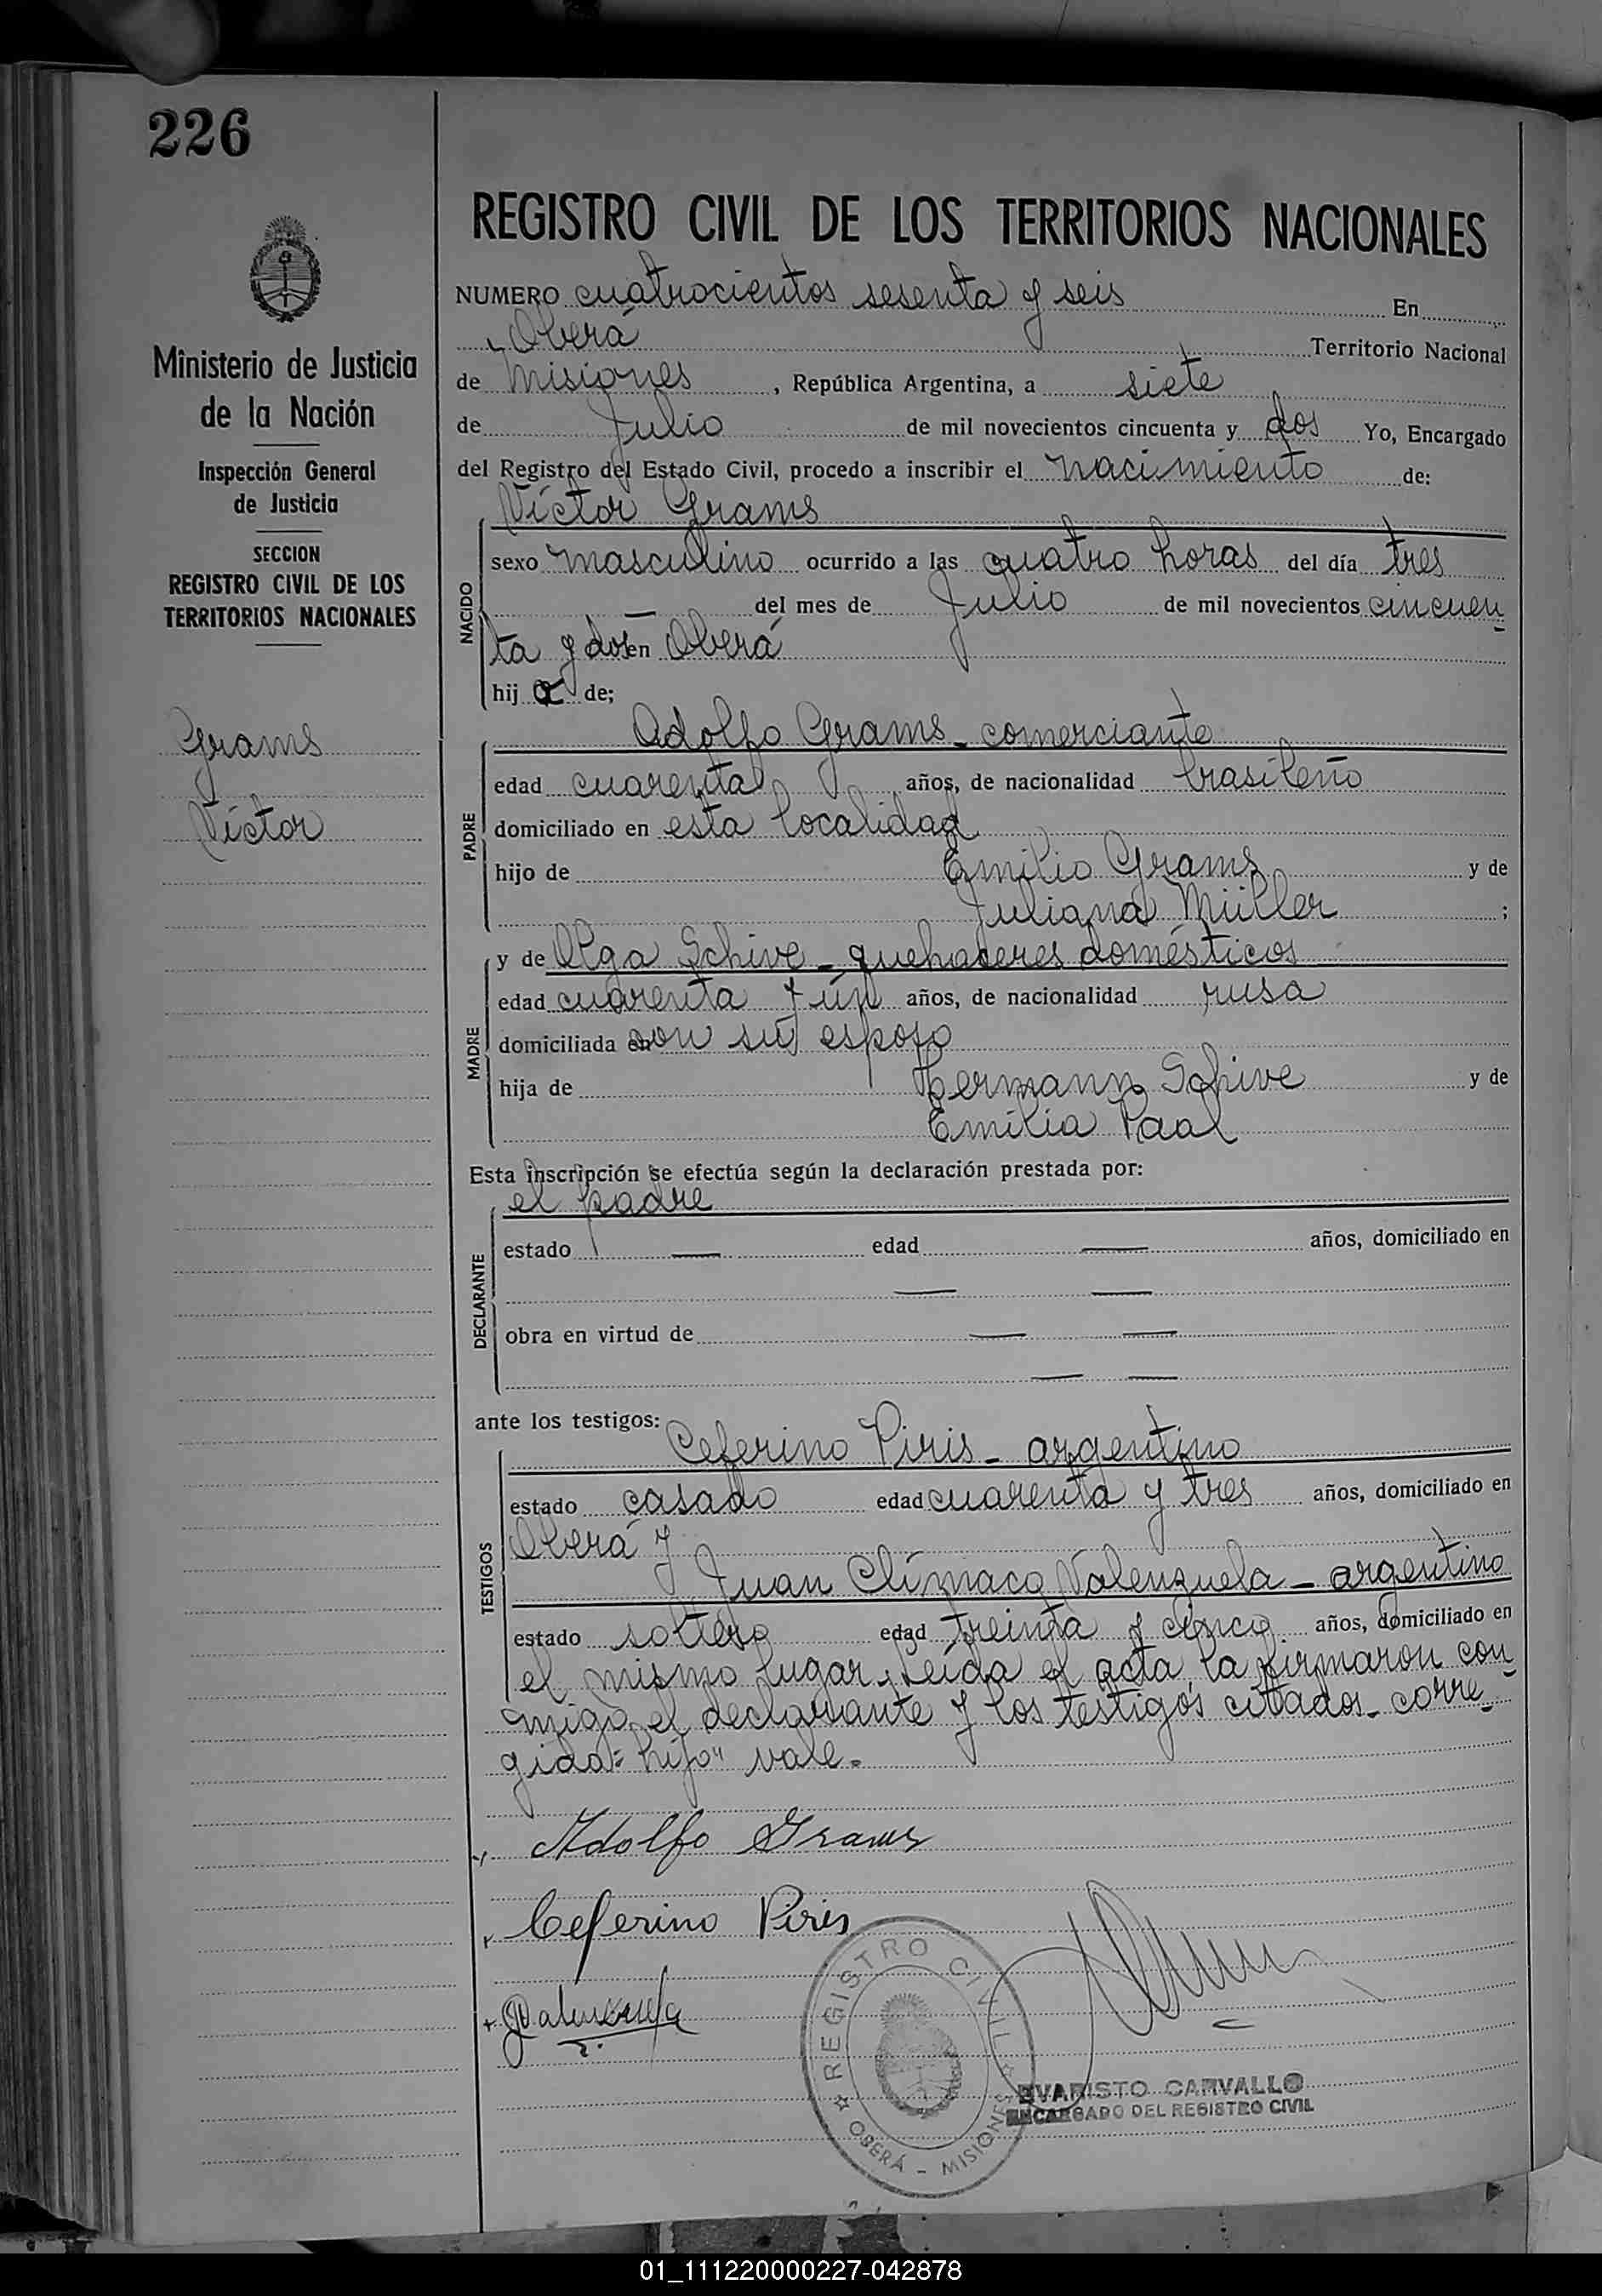 226
Ministerio de Justicia
de la Nación
Inspección General
de Justicia
SECCION
REGISTRO CIVIL DE LOS
TERRITORIOS NACIONALES
Grams
Víctor
REGISTRO CIVIL DE LOS TERRITORIOS NACIONALES
NUMERO cuatrocientos sesenta y seis En
Oberá Territorio Nacional
de Misiones, República Argentina, a siete
de Julio de mil novecientos cincuenta y dos Yo, Encargado
del Registro del Estado Civil, procedo a inscribir el nacimiento de:
Víctor Grams
NACIDO
sexo masculino ocurrido a las cuatro horas del día tres
— del mes de Julio de mil novecientos cincuen
ta y dos en Oberá
hijo de;
PADRE
Adolfo Grams - comerciante
edad cuarenta años, de nacionalidad brasileño
domiciliado en esta localidad
hijo de Emilio Grams y de
Juliana Müller ;
MADRE
y de Olga Schive - quehaceres domésticos
edad cuarenta y ún años, de nacionalidad rusa
domiciliada en con su esposo
hija de Hermann Schive y de
Emilia Paal
Esta inscripción se efectúa según la declaración prestada por:
el padre
DECLARANTE
estado — edad — años, domiciliado en
— —
obra en virtud de — —
— —
ante los testigos:
TESTIGOS
Ceferino Piris - argentino
estado casado edad cuarenta y tres años, domiciliado en
Oberá y
Juan Clímaco Valenzuela - argentino
estado soltero edad treinta y cinco años, domiciliado en
el mismo lugar. Leída el acta la firmaron con
migo el declarante y los testigos citados - corre-
gido: "hijo" vale.
Adolfo Grams
Ceferino Piris
JValenzuela
REGISTRO CIVIL
OBERÁ - MISIONES
EVARISTO CARVALLO
ENCARGADO DEL REGISTRO CIVIL
01_111220000227-042878